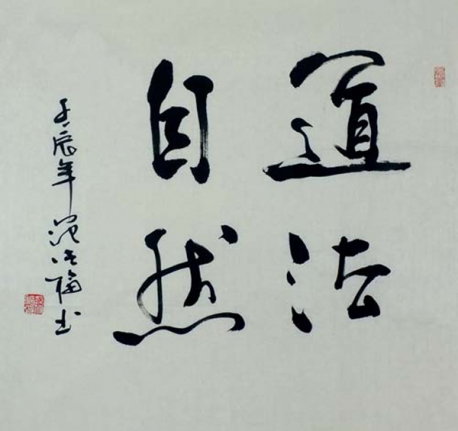 道法
自然
壬辰年范德福书